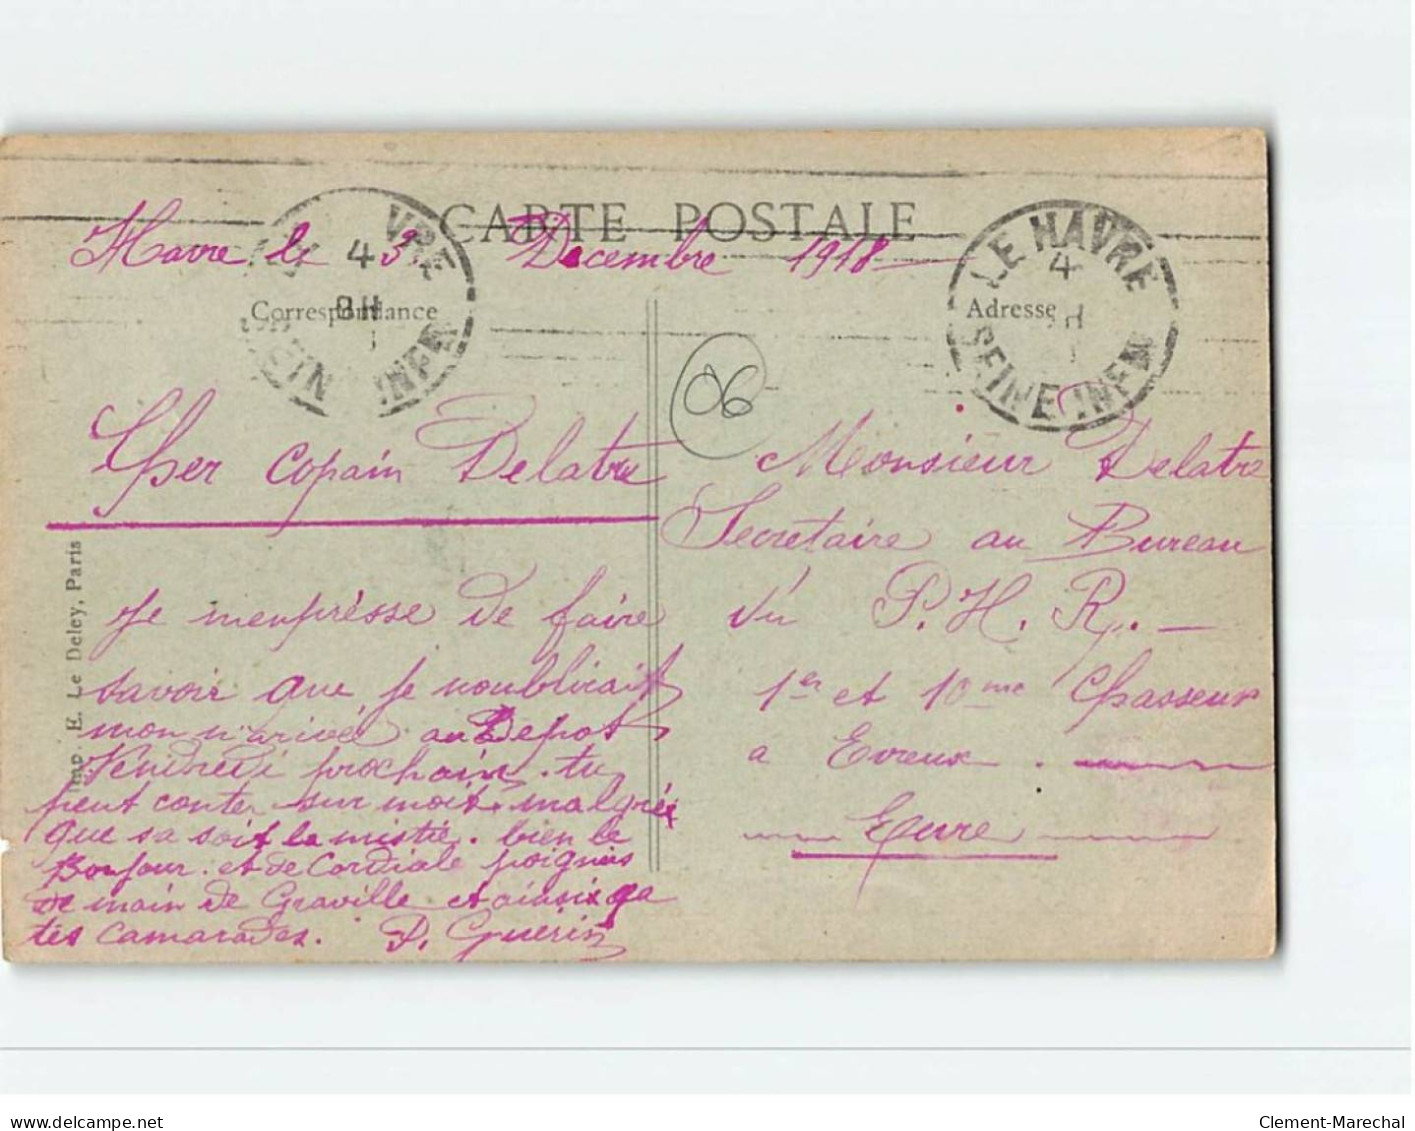 CARTE POSTALE
Havre le 3 Decembre 1918
Correspondance
Adresse
VRE
4
8H
SEIN INFRE
LE HAVRE
4
H
SEINE INFRE
06
Cher copain Delatre
Je m'emprèsse de faire
savoir que je n'oublirait
mon n'arivée au Depot
Vendredi prochain. tu
peut conter sur moit. malgrée
que sa soit la mistie. bien le
Bonjour. et de Cordiale poignéis
de main de Graville et ainsi qa
tes camarades. P. Guerin
Monsieur Delatre
Secretaire au Bureau
du P. H. R. —
1er et 10me Chasseur
a Evreux.
Eure
Imp. E. Le Deley, Paris
Clement-Marechal